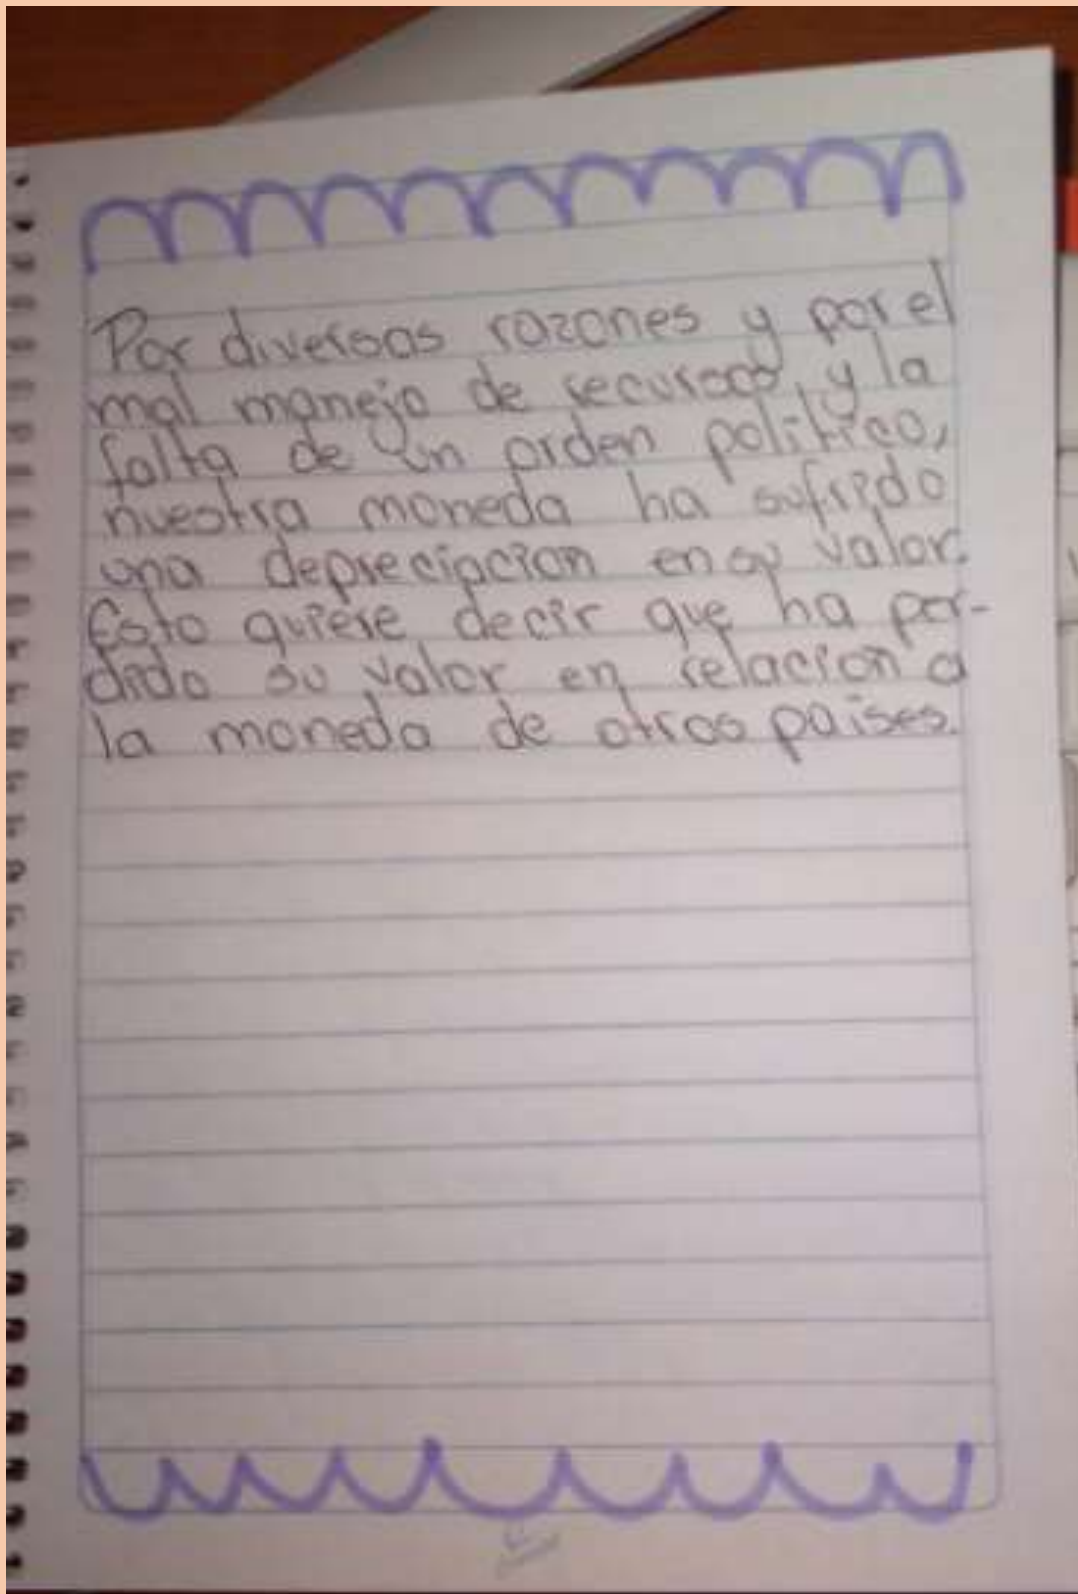 Por diversas razones y por el
mal manejo de recursos, y la
falta de un orden político,
nuestra moneda ha sufrido
una depreciacion en su valor.
Esto quiere decir que ha per-
dido su valor en relación a
la moneda de otros paises.